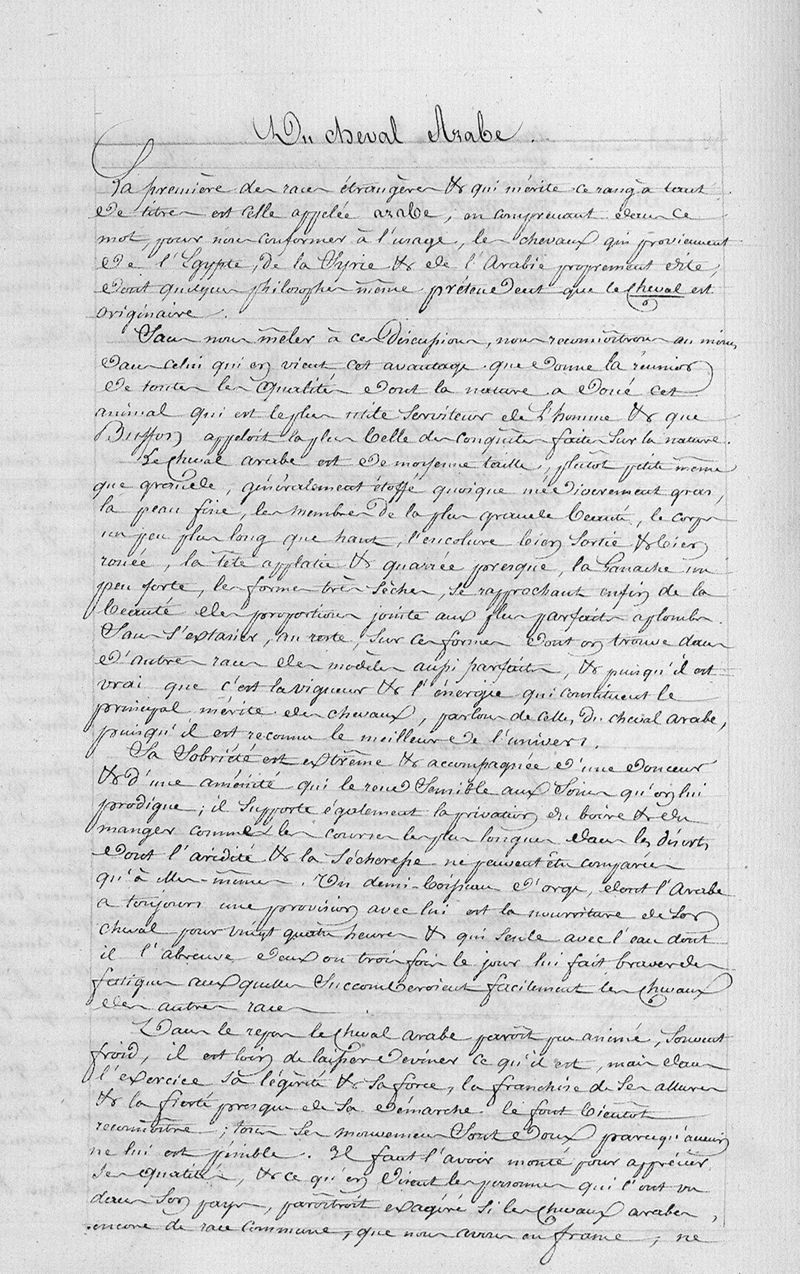 Du cheval Arabe.
La première des races étrangères & qui mérite ce rang à tant
de titres est celle appelée arabe, en comprenant dans ce
mot, pour nous conformer à l'usage, les chevaux qui proviennent
de l'Egypte, de la Syrie & de l'Arabie proprement dite,
dont quelques philosophes même prétendent que le cheval est
originaire.
Sans nous mêler à ces discussions, nous reconnoîtrons au moins
dans celui qui en vient cet avantage que donne la réunion
de toutes les qualités dont la nature a doué cet
animal qui est le plus utile serviteur de l'homme & que
Buffon appeloit la plus belle des conquêtes faites sur la nature.
Le cheval arabe est de moyenne taille, plutôt petite même
que grande, généralement étoffé quoique médiocrement gras,
la peau fine, les membres de la plus grande beauté, le corps
un peu plus long que haut, l'encolure bien sortie & bien
rouée, la tête applatie & quarrée presque, la Ganache un
peu forte, les formes très sèches, se rapprochant enfin de la
beauté des proportions jointe aux plus parfaits aplombs.
Sans s'extasier, au reste, sur ces formes dont on trouve dans
d'autres races des modèles aussi parfaits, & puisqu'il est
vrai que c'est la vigueur & l'énergie qui constituent le
principal mérite des chevaux, parlons de celles du cheval arabe,
puisqu'il est reconnu le meilleur de l'univers.
Sa Sobriété est extrême & accompagnée d'une douceur
& d'une aménité qui le rend sensible aux soins qu'on lui
prodigue; il supporte également la privation du boire & du
manger comme les courses les plus longues dans les déserts
dont l'aridité & la sécheresse ne peuvent être comparées
qu'à elles-mêmes. Un demi-boisseau d'orge, dont l'Arabe
a toujours une provision avec lui est la nourriture de son
cheval pour vingt quatre heures & qui seule avec l'eau dont
il l'abreuve deux ou trois fois le jour lui fait braver des
fatigues auxquelles succomberoient facilement les chevaux
des autres races
Dans le repos le cheval arabe paroît peu animé, souvent
froid, il est loin de laisser deviner ce qu'il est, mais dans
l'exercice sa légèreté & sa force, la franchise de ses allures
& la fierté presque de sa démarche le font bientôt
reconnoître; tous ses mouvemens sont doux parcequ'aucun
ne lui est pénible. Il faut l'avoir monté pour apprécier
ses qualités, & ce qu'en disent les personnes qui l'ont vu
dans son pays, paroîtroit exagéré si les chevaux arabes,
encore de race commune, que nous avons en france, ne